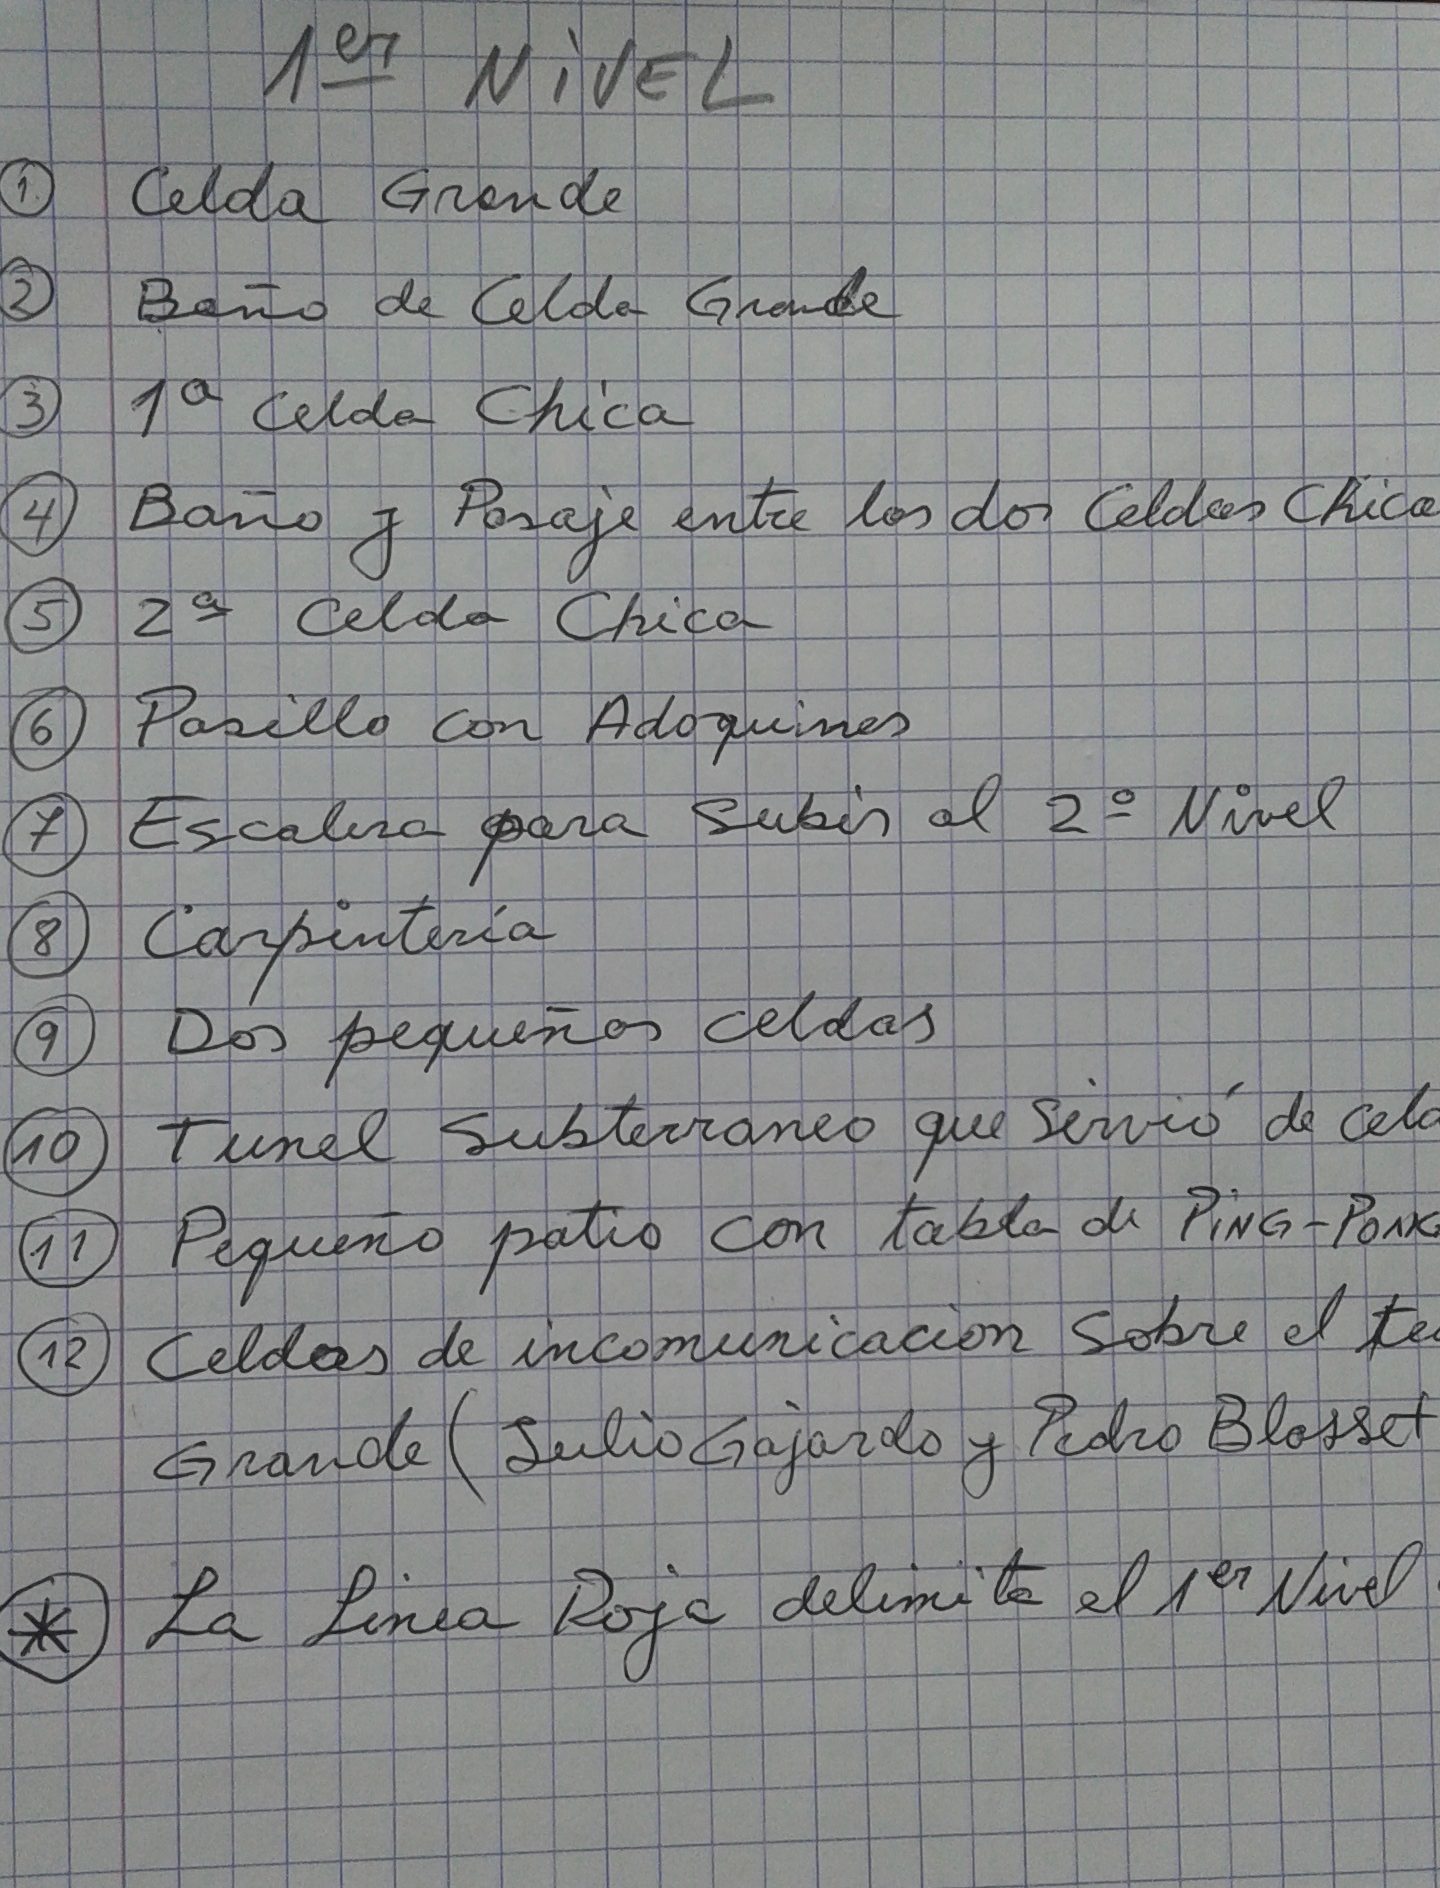 1er NIVEL
1. Celda Grande
2 Baño de Celda Grande
3 1ª Celda Chica
4 Baño y Pasaje entre las dos Celdas Chica
5 2ª Celda Chica
6 Pasillo con Adoquines
7 Escalera para Subir al 2º Nivel
8 Carpintería
9 Dos pequeñas celdas
10 Tunel Subterraneo que Sirvió de celd
11 Pequeño patio con tabla de PING-PONG
12 Celdas de incomunicacion Sobre el te
Grande (Julio Gajardo y Pedro Blasset
* La Linea Roja delimita el 1er Nivel.